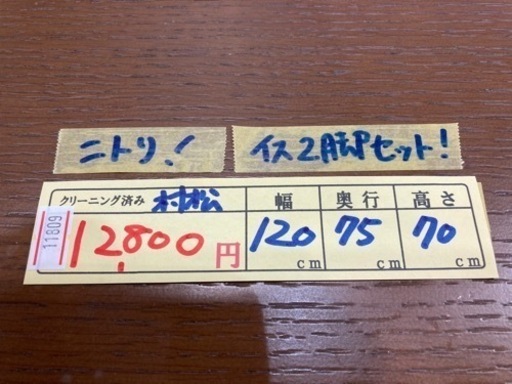 ニトリ!
イス2脚セット!
クリーニング済み 村松 幅 奥行 高さ
11809 12,800円 120cm 75cm 70cm